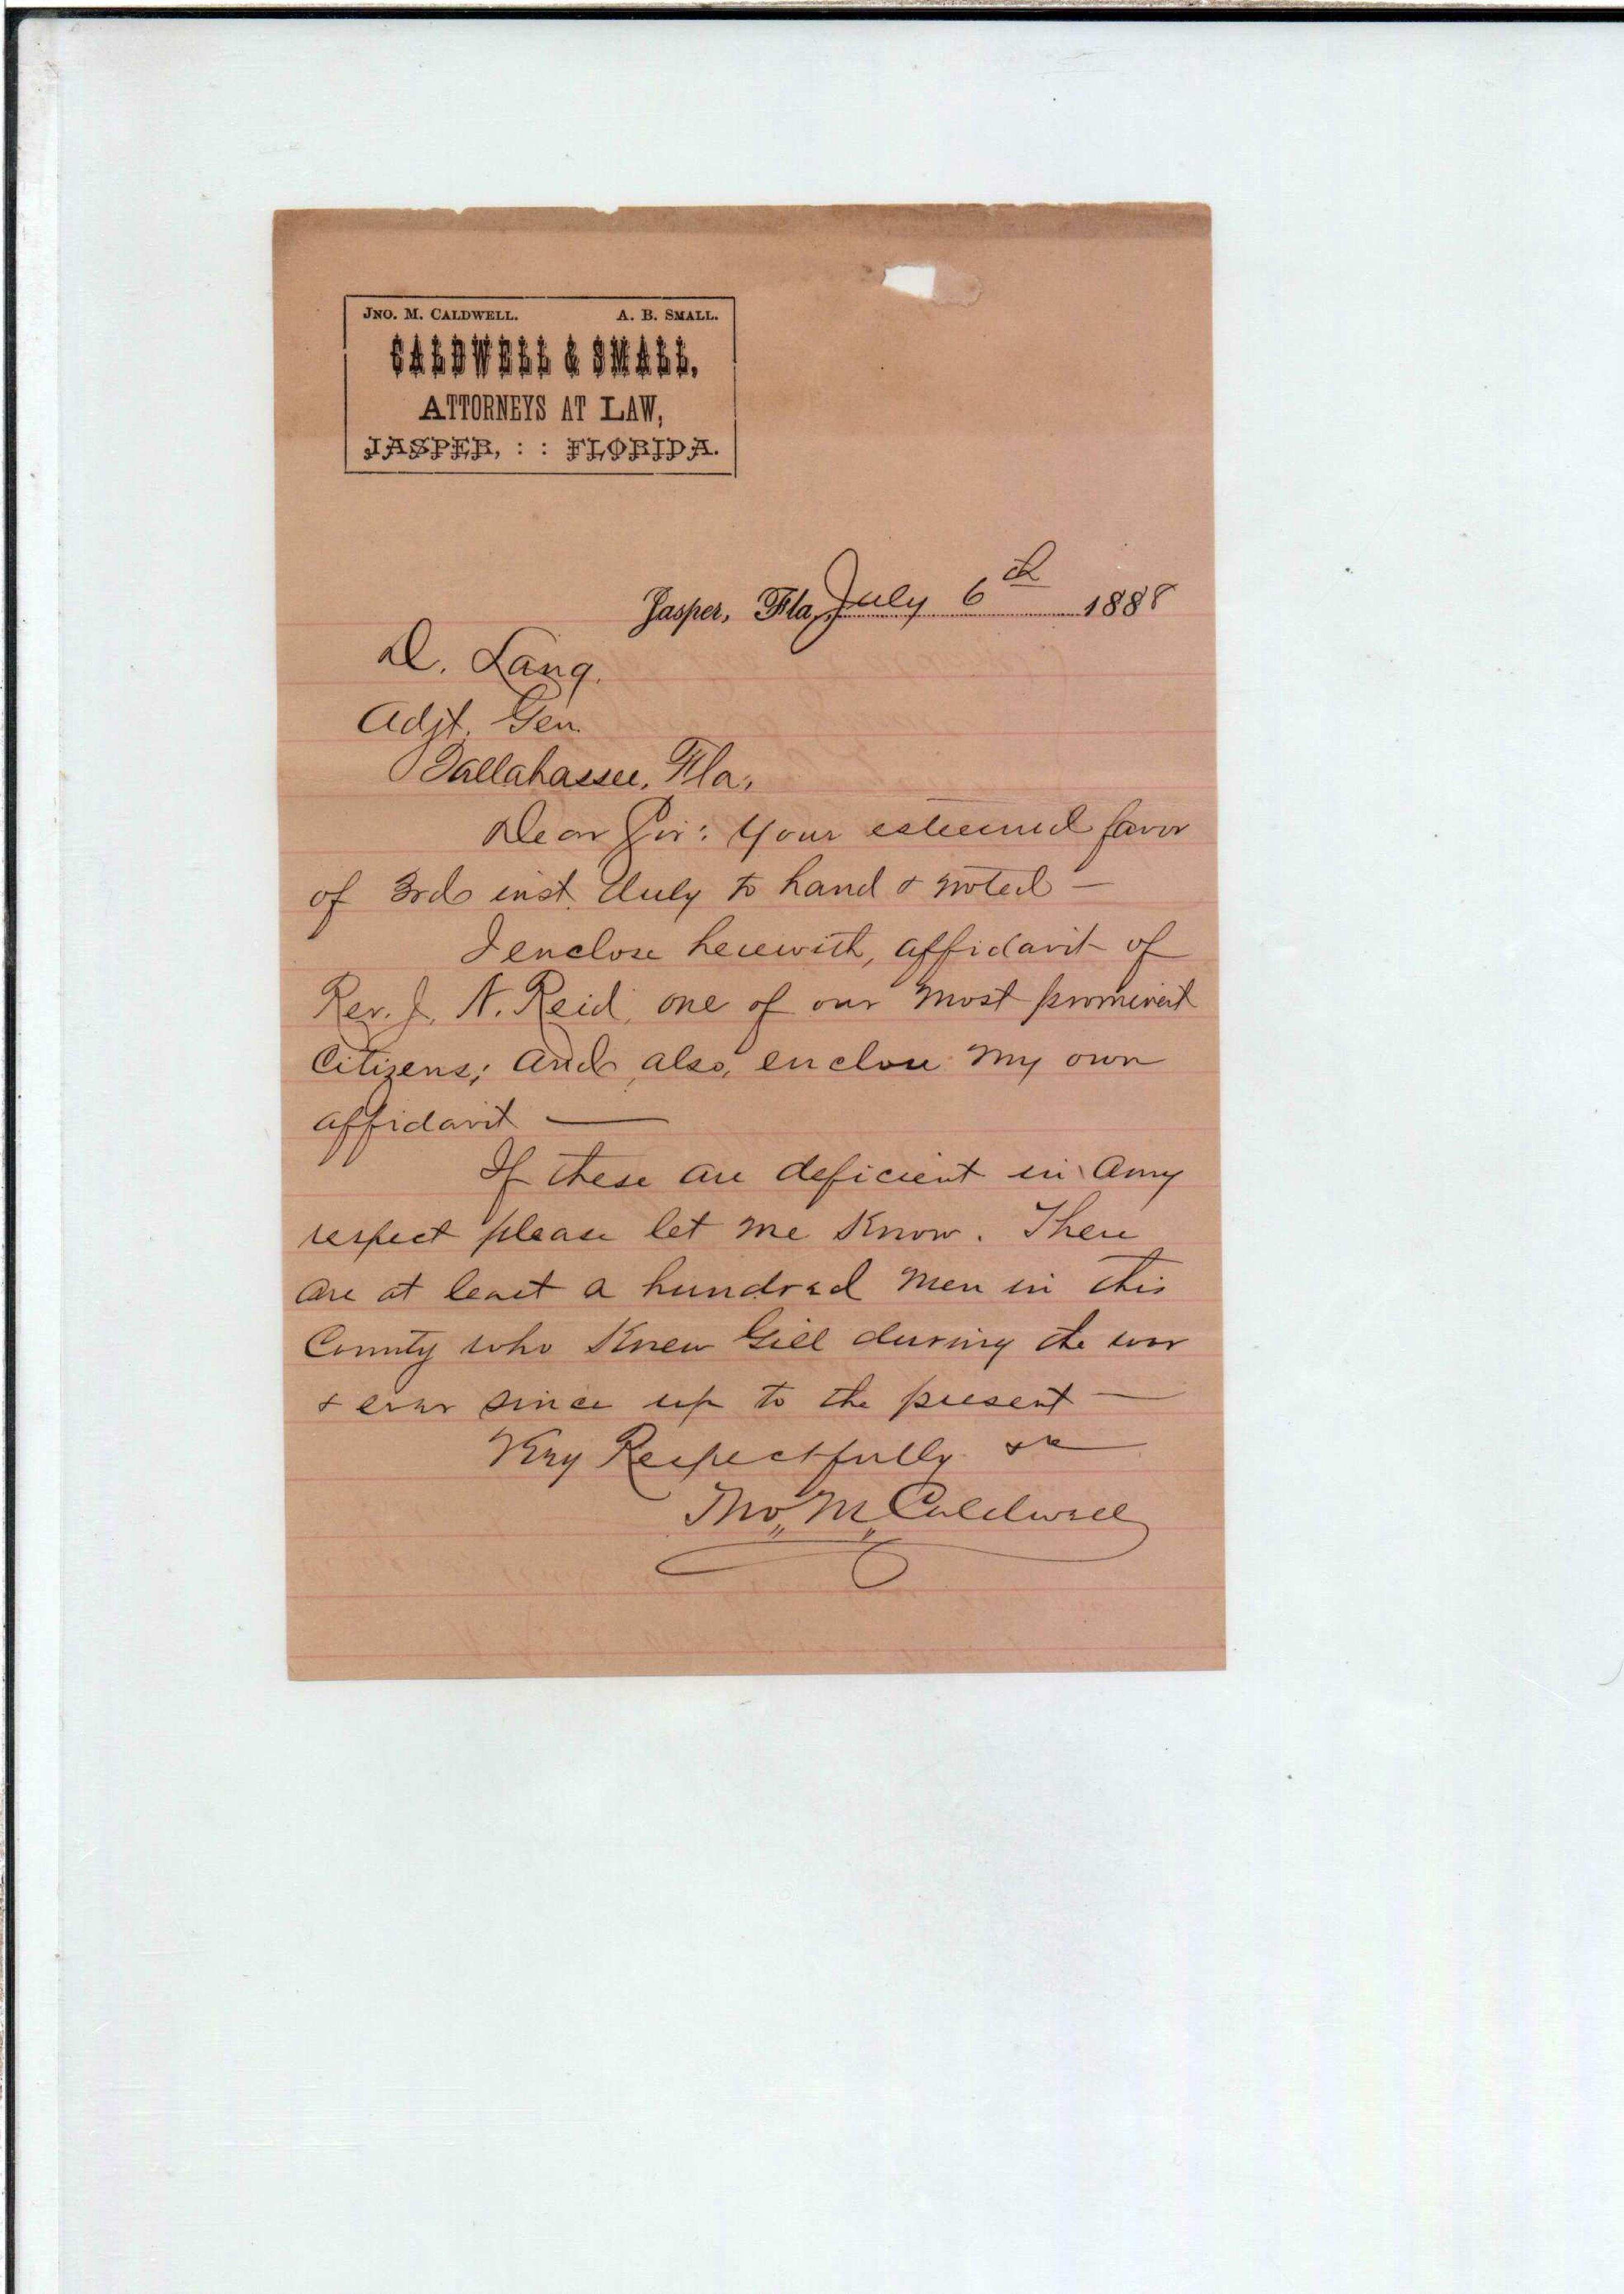 JNO. M. CALDWELL. A. B. SMALL.
CALDWELL & SMALL,
ATTORNEYS AT LAW,
JASPER, : : FLORIDA.
Jasper, Fla., July 6th 1888
D. Lang.
Adjt. Gen.
Tallahassee, Fla,
Dear Sir: Your esteemed favor
of 3rd inst. duly to hand & noted —
I enclose herewith, affidavit of
Rev. J. N. Reid, one of our most prominent
Citizens; and, also, enclose my own
affidavit —
If these are deficient in any
respect please let me know. There
are at least a hundred men in this
County who knew Gill during the war
& ever since up to the present —
Very Respectfully &c
Jno, M, Caldwell